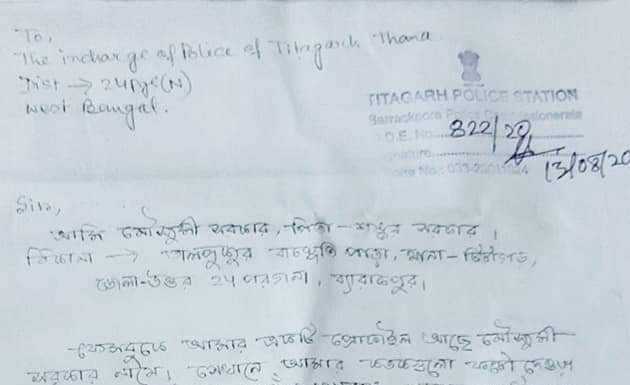 To,
The incharge of Police of Titagarh Thana
Dist → 24 Pgs (N)
West Bangal.
TITAGARH POLICE STATION
Barrackpore Police Commissionerate
D.E. No. 822/20
13/08/20
Sir,
আমি মৌসুমী সরকার, পিতা – শঙ্কর সরকার ।
ঠিকানা → তালপুকুর পাড়া, থানা – টিটাগড়,
জেলা - উত্তর 24 পরগনা, ব্যারাকপুর।
ফেসবুকে আমার একটি প্রোফাইল আছে মৌসুমী
সরকার নামে। সেখানে আমার কতকগুলো